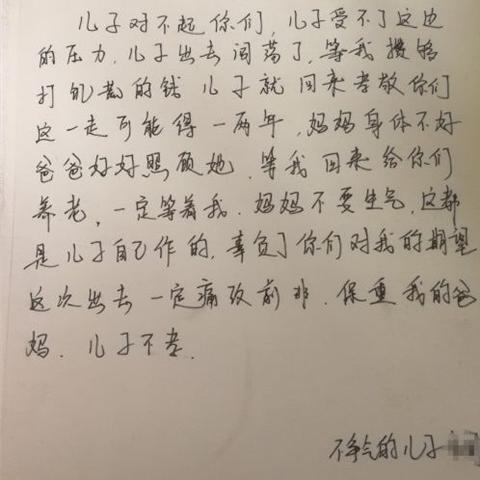 儿子对不起你们,儿子受不了这边
的压力,儿子出去闯荡了,等我攒够
打 的钱 儿子就回来孝敬你们
这一走可能得一两年,妈妈身体不好
爸爸好好照顾她,等我回来给你们
养老,一定等着我.妈妈不要生气,这都
是儿子自己作的,辜负了你们对我的期望
这次出去一定痛改前非.保重我的爸
妈.儿子不孝.
不争气的儿子